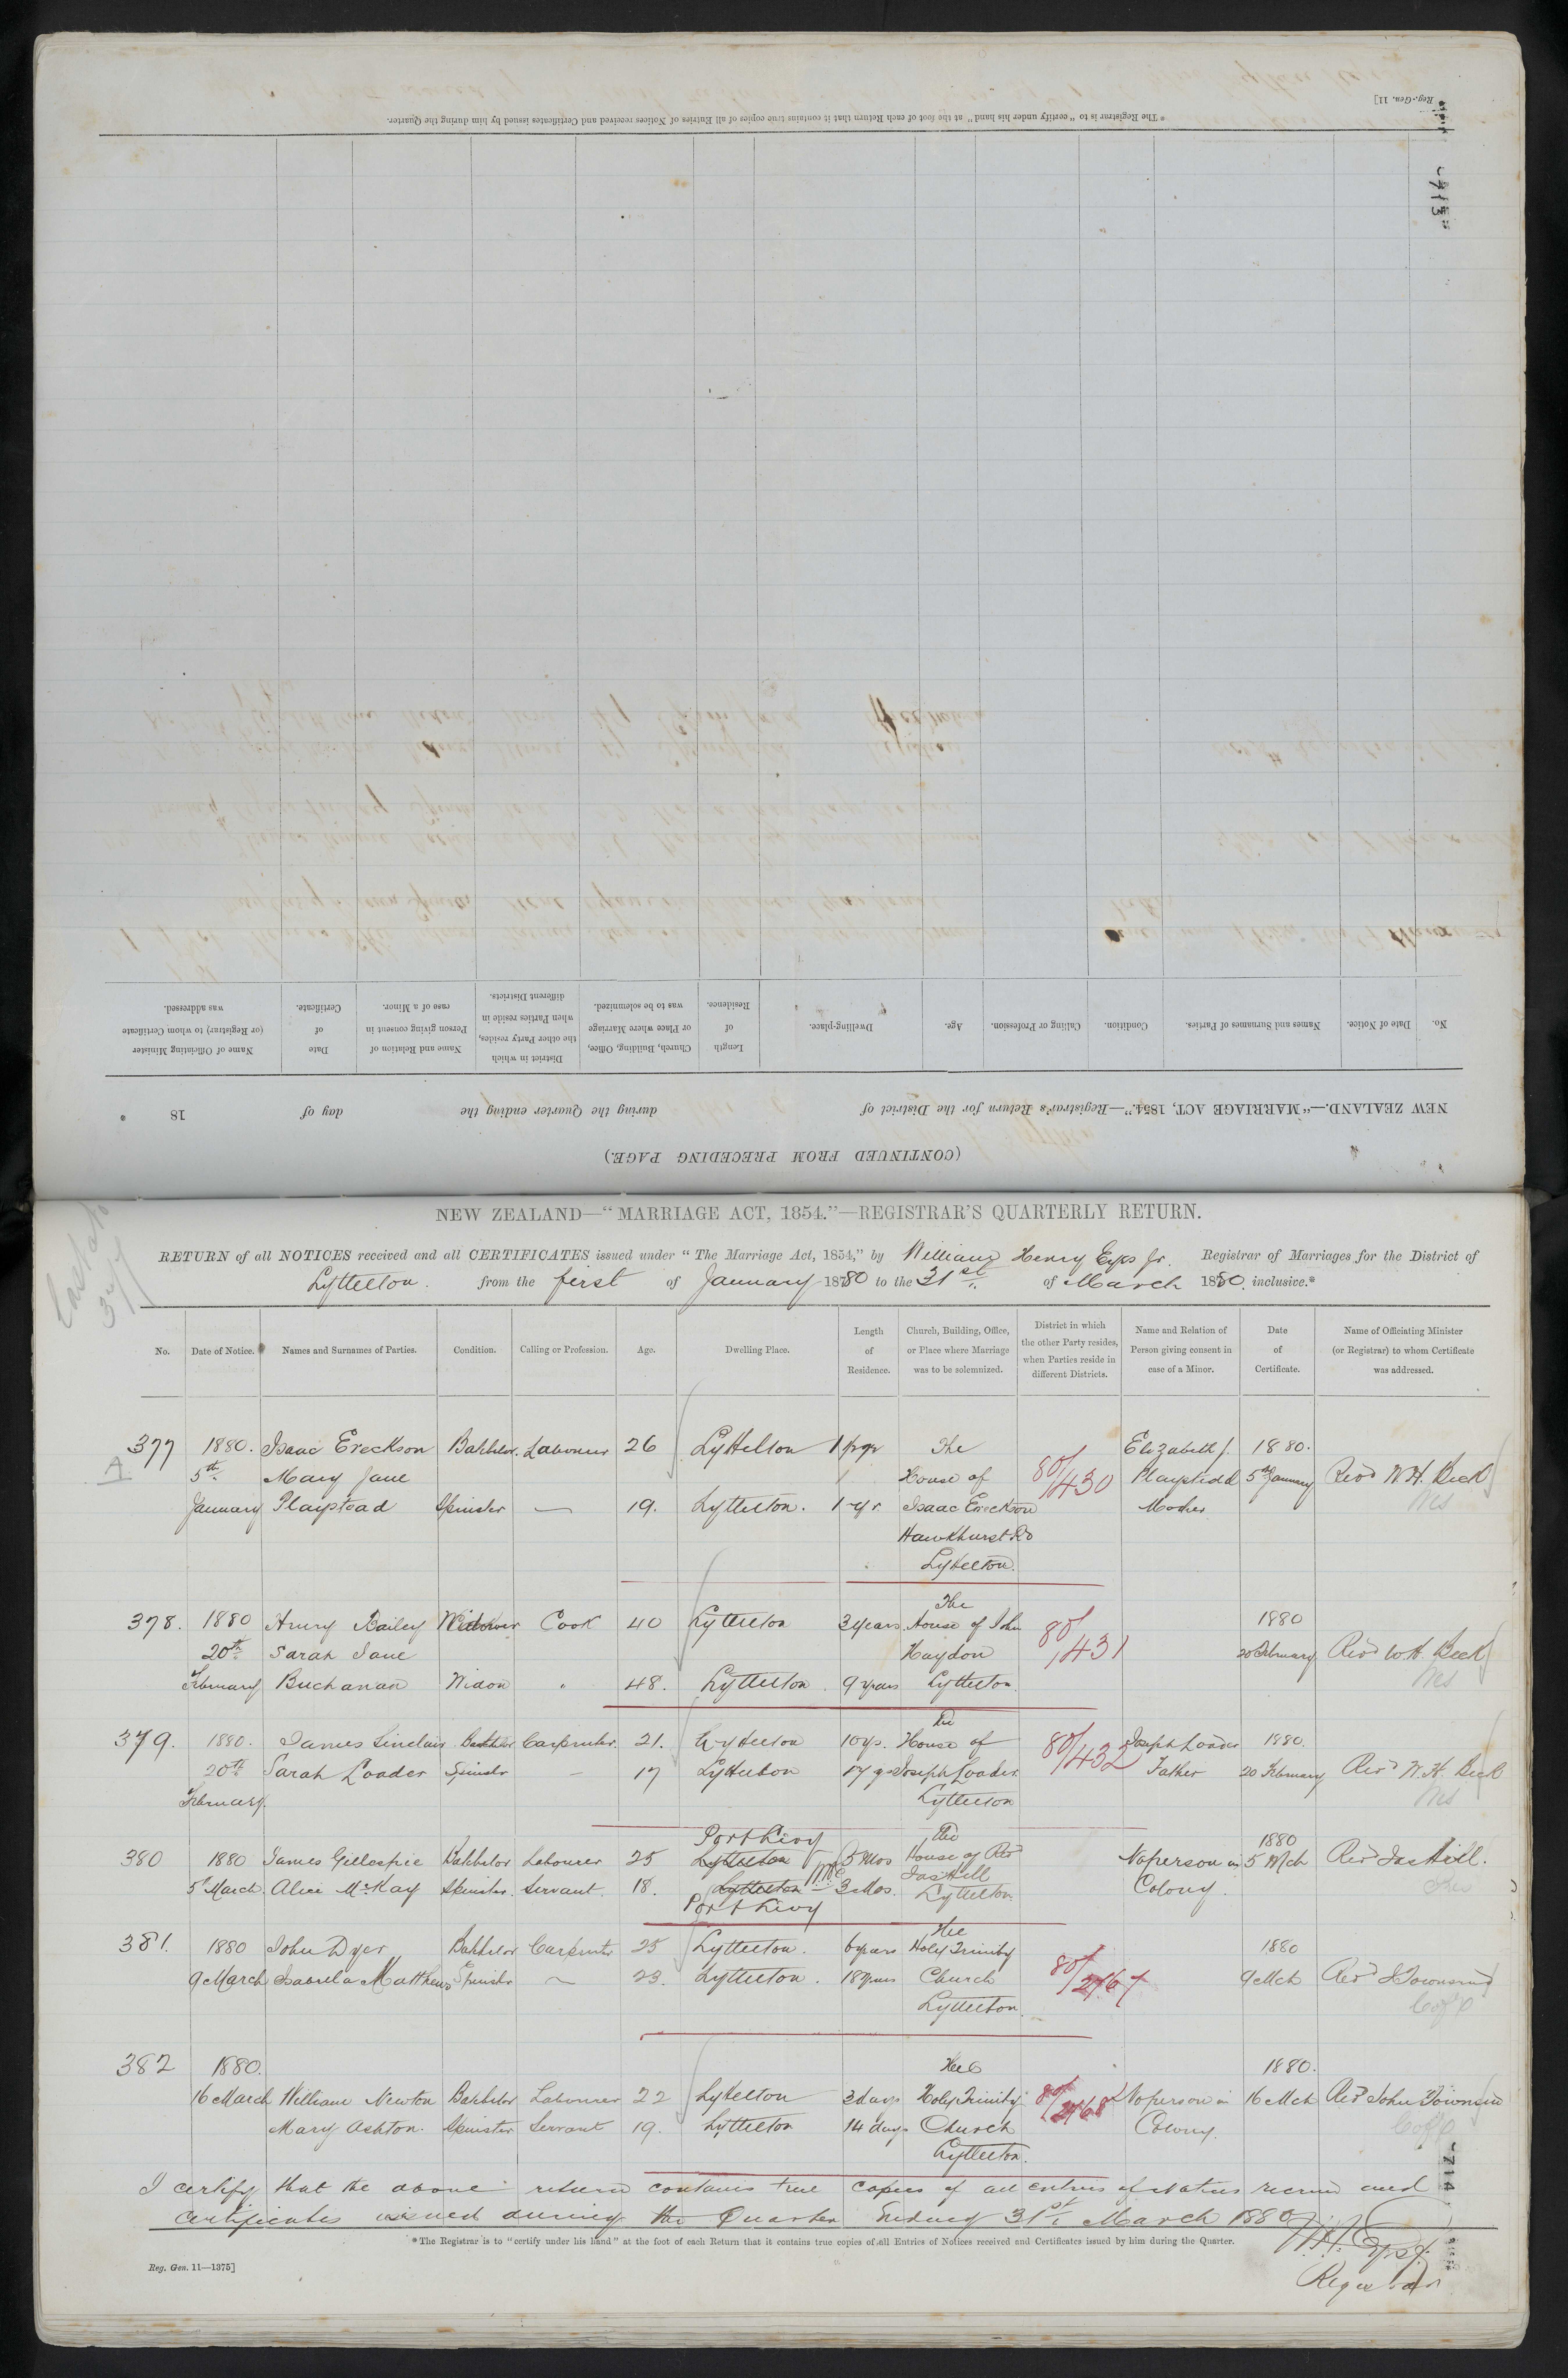 Reg.-Gen. 11]
*The Registrar is to "certify under his hand" at the foot of each Return that it contains true copies of all Entries of Notices received and Certificates issued by him during the Quarter.
713
No. Date of Notice. Names and Surnames of Parties. Condition. Calling or Profession. Age. Dwelling-place. Length of Residence. Church, Building, Office, or Place where Marriage was to be solemnized. District in which the other Party resides, when Parties reside in different Districts. Name and Relation of Person giving consent in case of a Minor. Date of Certificate. Name of Officiating Minister (or Registrar) to whom Certificate was addressed.
NEW ZEALAND.—"MARRIAGE ACT, 1854."—Registrar's Return for the District of during the Quarter ending the day of 18 *
(CONTINUED FROM PRECEDING PAGE.)
NEW ZEALAND—"MARRIAGE ACT, 1854."—REGISTRAR'S QUARTERLY RETURN.
RETURN of all NOTICES received and all CERTIFICATES issued under "The Marriage Act, 1854," by William Henry Eyes Jr. Registrar of Marriages for the District of
Lyttelton. from the first of January 1880 to the 31st of March 1880. inclusive.*
No. Date of Notice. Names and Surnames of Parties. Condition. Calling or Profession. Age. Dwelling Place. Length of Residence. Church, Building, Office, or Place where Marriage was to be solemnized. District in which the other Party resides, when Parties reside in different Districts. Name and Relation of Person giving consent in case of a Minor. Date of Certificate. Name of Officiating Minister (or Registrar) to whom Certificate was addressed.
377 1880. Isaac Ereckson Bachelor. Labourer 26 Lyttelton 1 yr The Elizabeth J. 1880.
5th Mary Jane House of 80/430 Playstedd 5th January Revd W. H. Beck
January Playstead Spinster — 19. Lyttelton. 1 yr. Isaac Ereckson Mother Wes
Hawkhurst Rd
Lyttelton.
378. 1880 Henry Bailey Widower Cook 40 Lyttelton 3 years The House of John 80/431 1880
20th Sarah Jane Haydon 20 February Revd W. H. Beck
February Buchanan Widow " 48. Lyttelton. 9 years Lyttelton. Wes
379. 1880. James Sinclair Bachelor Carpenter 21. Lyttelton 10 ys. The House of 80/432 Joseph Loader 1880.
20th Sarah Loader Spinster — 17 Lyttelton 17 ys Joseph Loader Father 20 February Revd W. H. Beck
February. Lyttelton Wes
Port Levy The 1880
380 1880 James Gillespie Bachelor Labourer 25 Lyttelton 5 Mos House of Revd No person in 5 Mch Revd Jas Hill.
5th March. Alice McKay Spinster. Servant. 18. Lyttelton 3 Mos. Jas Hill Colony.
Port Levy Lyttelton
381. 1880 John Dyer Bachelor Carpenter 25 Lyttelton. 6 years The Holy Trinity 80/267 1880
9 March Isabella Matthews Spinster — 23. Lyttelton. 18 years Church 9 Mch Revd J Townsend
Lyttelton. C of E
382 1880. The 1880.
16 March William Newton Bachelor Labourer 22 Lyttelton 3 days Holy Trinity 80/268 No person in 16 Mch Revd John Townsend
Mary Ashton. Spinster Servant 19. Lyttelton 14 days Church Colony. C of E
Lyttelton.
I certify that the above return contains true copies of all entries of Notices received and
Certificates issued during the Quarter Ending 31st March 1880
*The Registrar is to "certify under his hand" at the foot of each Return that it contains true copies of all Entries of Notices received and Certificates issued by him during the Quarter.
W. H. Eyes Jr.
Reg. Gen. 11—1375]
Registrar
714